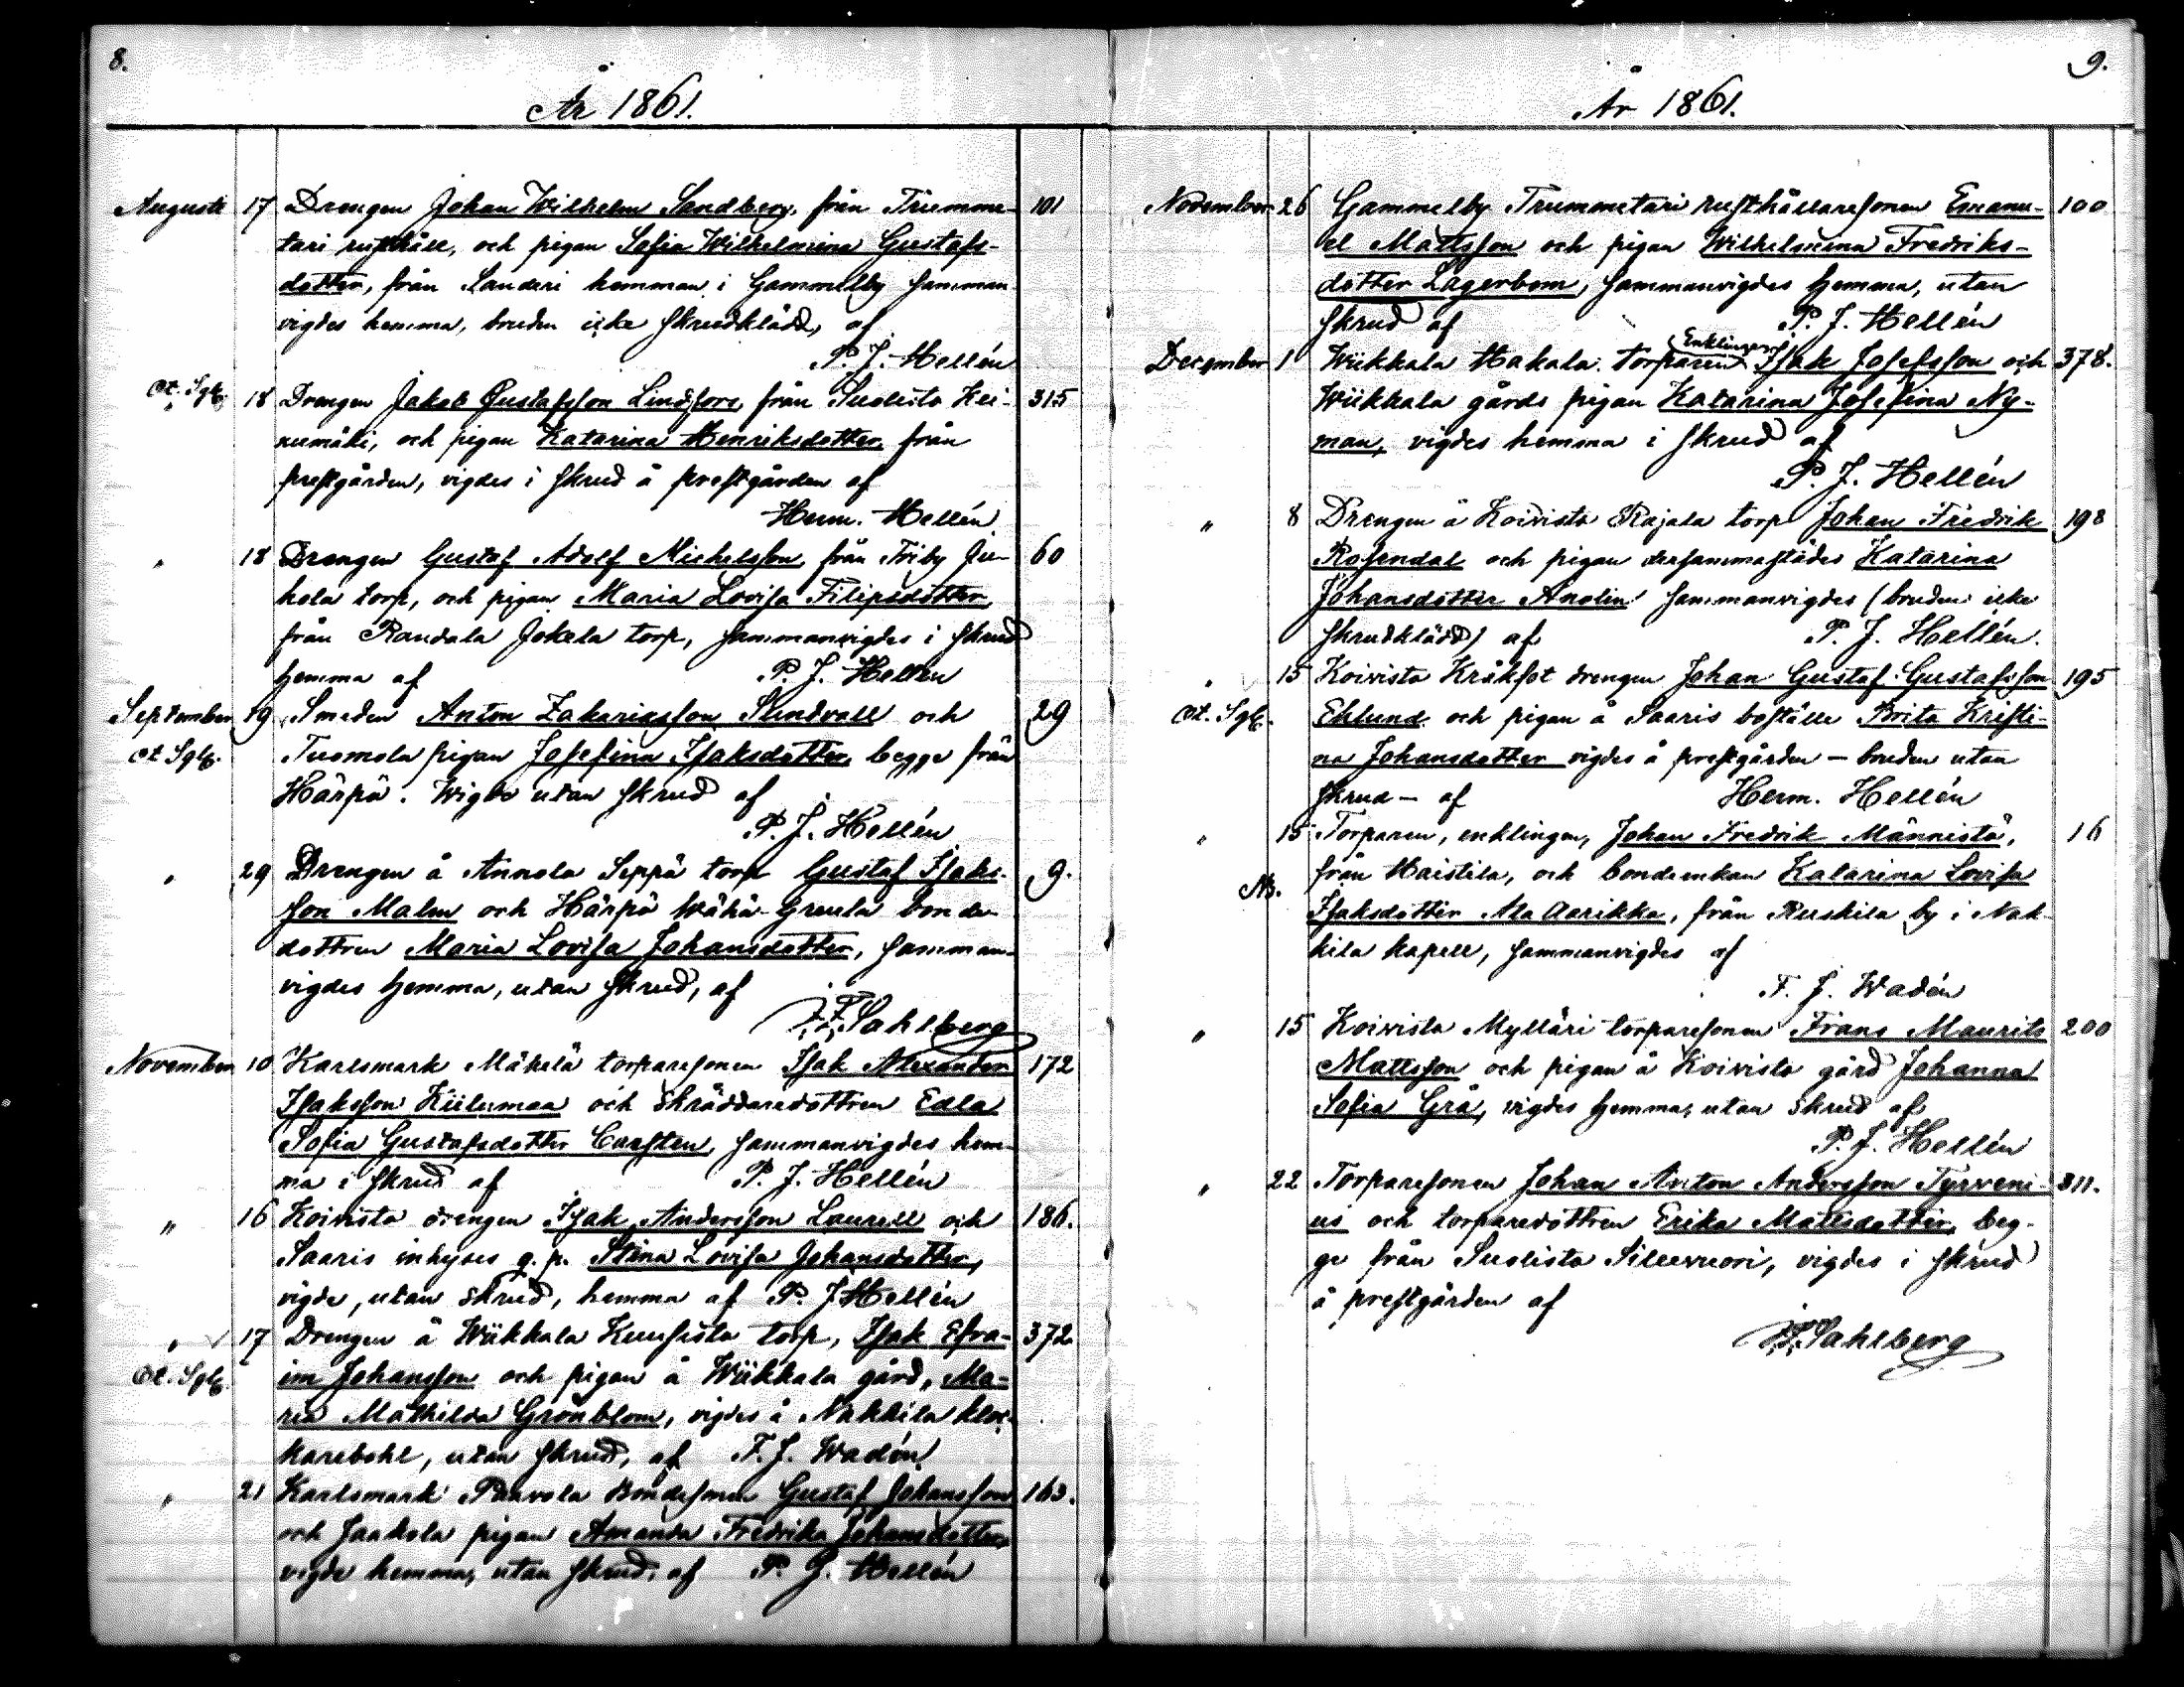 8.
År 1861.
Augusti 17 Drengen Johan Wilhelm Sandberg, från Trumme- 101
tari rusthåll, och pigan Sofia Wilhelmina Gustafs-
dotter, från Sandari hemman i Gammelby samman-
vigdes hemma, bruden icke skrudklädd, af
P. J. Hellén
At. Sgb. 18 Drengen Jakob Gustafsson Lindfors, från Suolisto Hei- 315
numäki, och pigan Katarina Henriksdotter, från
prestgården, vigdes i skrud å prestgården af
Herm. Hellén
" 18 Drengen Gustaf Adolf Michelsson, från Friby Ju- 60
hola torp, och pigan Maria Lovisa Filipsdotter,
från Randala Jokela torp, sammanvigdes i skrud
hemma af P. J. Hellén
September 19 Smeden Anton Zakariasson Sundvall och 29
At Sgb. Tuomola pigan Josefina Isaksdotter, begge från
Härpö. Wigde utan skrud af
P. J. Hellén
" 29 Drengen å Annola Seppä torp Gustaf Isaks- 9.
son Malm och Härpö Wähä-Greula bonde-
dottren Maria Lovisa Johansdotter, samman-
vigdes hemma, utan skrud, af
F. F. Sahlberg
November 10 Karlsmark Mäkelä torparesonen Isak Alexander 172
Isaksson Kiilumaa och skräddaredottren Edla
Sofia Gustafsdotter Carsten, sammanvigdes hem-
ma i skrud af P. J. Hellén
" 16 Koivisto drengen Isak Andersson Laurell och 186.
Saaris inhyses q. p. Stina Lovisa Johansdotter,
vigde, utan skrud, hemma af P. J. Hellén
" 17 Drengen å Wiikkala Kuusisto torp, Isak Efra- 372
At. Sgb. im Johansson och pigan å Wiikkala gård, Ma-
ria Mathilda Grönblom, vigdes å Nakkila kloc-
karebohl, utan skrud, af F. J. Wadén
" 21 Karlsmark Paavola bondesonen Gustaf Johansson 163.
och Jaakola pigan Amanda Fredrika Johansdotter,
vigde hemma, utan skrud, af P. J. Hellén
9.
År 1861.
November 26 Gammelby Trummetari rusthållaresonen Emanu- 100
el Mattsson och pigan Wilhelmina Fredriks-
dotter Lagerbom, sammanvigdes hemma, utan
skrud af P. J. Hellén
Enklingen
December 1 Wiikkala Hakala torparen Isak Josefsson och 378.
Wiikkala gårds pigan Katarina Josefina Ny-
man, vigdes hemma i skrud af
P. J. Hellén
" 8 Drengen å Koivisto Rajala torp Johan Fredrik 198
Rosendal och pigan dersammastädes Katarina
Johansdotter Anolin sammanvigdes (bruden icke
skrudklädd) af P. J. Hellén.
" 15 Koivisto Kråkfot drengen Johan Gustaf Gustafsson 195
At. Sgb. Eklund och pigan å Saaris boställe Brita Kristi-
na Johansdotter vigdes å prestgården — bruden utan
skrud — af Herm. Hellén
" 15 Torparen, enklingen, Johan Fredrik Männistö, 16
från Haistila, och bondeenkan Katarina Lovisa
Ns. Isaksdotter Ala Aarikka, från Ruskila by i Nak-
kila kapell, sammanvigdes af
F. J. Wadén
" 15 Koivisto Mylläri torparesonen Frans Maurits 200
Mattsson och pigan å Koivisto gård Johanna
Sofia Grå, vigdes hemma, utan skrud af
P. J. Hellén
" 22 Torparesonen Johan Anton Andersson Tyrveni- 311.
us och torparedottren Erika Mattsdotter, beg-
ge från Suolisto Sillevuori, vigdes i skrud
å prestgården af
F. F. Sahlberg